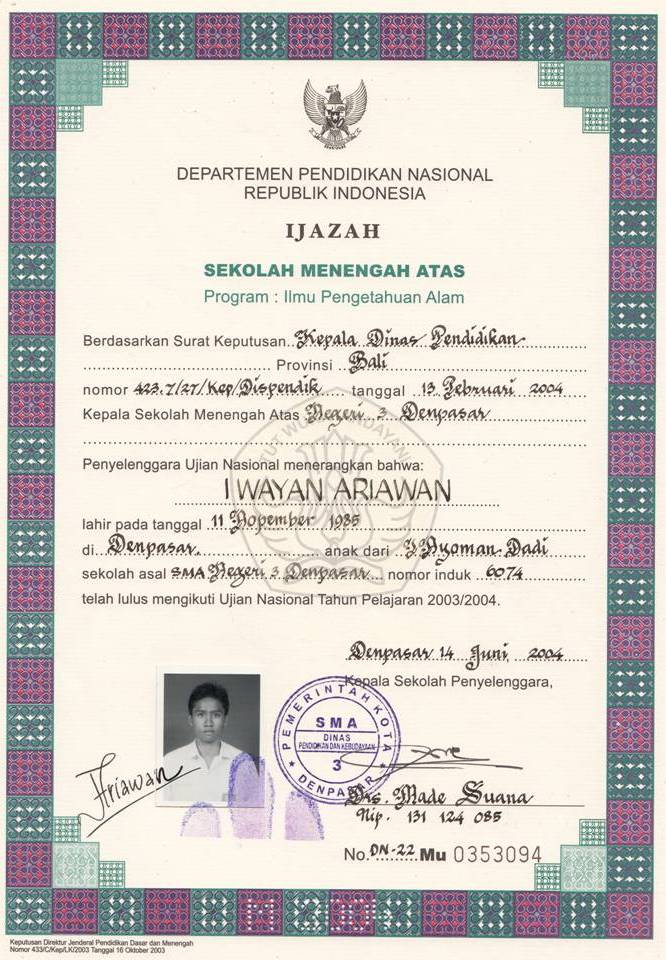 DEPARTEMEN PENDIDIKAN NASIONAL
REPUBLIK INDONESIA
IJAZAH
SEKOLAH MENENGAH ATAS
Program : Ilmu Pengetahuan Alam
Berdasarkan Surat Keputusan Kepala Dinas Pendidikan
Provinsi Bali
nomor 423.7/27/Kep/Dispendik tanggal 13 Pebruari 2004
Kepala Sekolah Menengah Atas Negeri 3 Denpasar
Penyelenggara Ujian Nasional menerangkan bahwa:
I WAYAN ARIAWAN
lahir pada tanggal 11 Nopember 1985
di Denpasar anak dari I Nyoman Dadi
sekolah asal SMA Negeri 3 Denpasar nomor induk 6074
telah lulus mengikuti Ujian Nasional Tahun Pelajaran 2003/2004.
Denpasar 14 Juni 2004
Kepala Sekolah Penyelenggara,
PEMERINTAH KOTA
SMA
DINAS
PENDIDIKAN DAN KEBUDAYAAN
3
DENPASAR
Ariawan
Drs. Made Suana
Nip. 131 124 085
No. DN-22 Mu 0353094
Keputusan Direktur Jenderal Pendidikan Dasar dan Menengah
Nomor 433/C/Kep/LK/2003 Tanggal 16 Oktober 2003